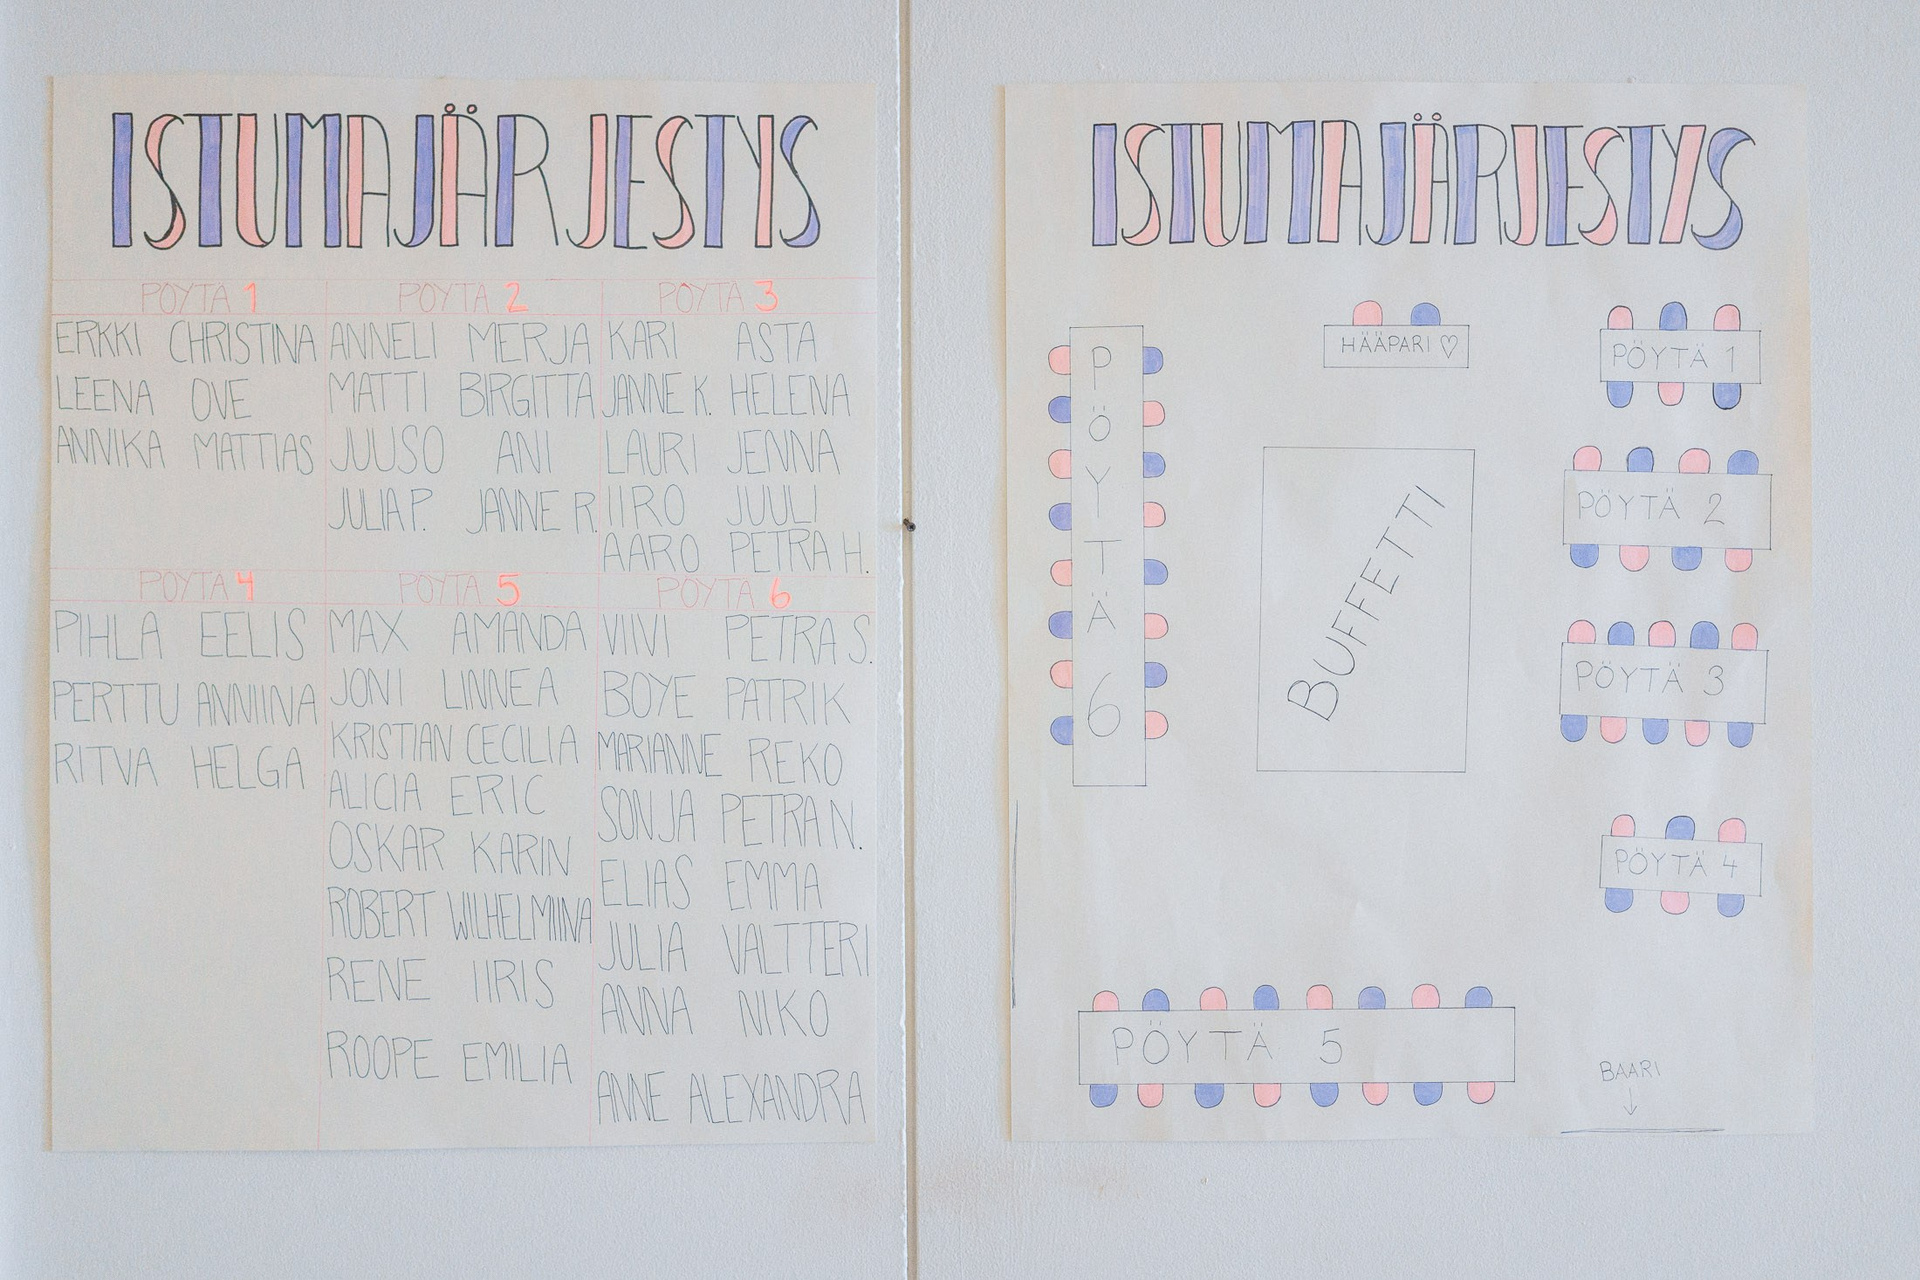 ISTUMAJÄRJESTYS
PÖYTÄ 1 PÖYTÄ 2 PÖYTÄ 3
ERKKI CHRISTINA ANNELI MERJA KARI ASTA
LEENA OVE MATTI BIRGITTA JANNE K. HELENA
ANNIKA MATTIAS JUUSO ANI LAURI JENNA
JULIA P. JANNE R. IIRO JUULI
AARO PETRA H.
PÖYTÄ 4 PÖYTÄ 5 PÖYTÄ 6
PIHLA EELIS MAX AMANDA VIIVI PETRA S.
PERTTU ANNIINA JONI LINNEA BOYE PATRIK
RITVA HELGA KRISTIAN CECILIA MARIANNE REKO
ALICIA ERIC SONJA PETRA N.
OSKAR KARIN ELIAS EMMA
ROBERT WILHELMIINA JULIA VALTTERI
RENE IIRIS ANNA NIKO
ROOPE EMILIA ANNE ALEXANDRA
ISTUMAJÄRJESTYS
HÄÄPARI ♡
PÖYTÄ 1
PÖYTÄ 6
BUFFETTI
PÖYTÄ 2
PÖYTÄ 3
PÖYTÄ 4
PÖYTÄ 5
BAARI
↓